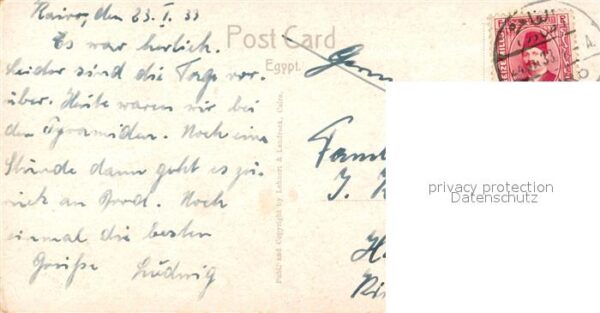 Kairo, den 23. I. 33
Es war herlich.
Leider sind die Tage vor-
über. Heute waren wir bei
den Pyramiden. Noch eine
Stunde dann geht es zu-
rück an Bord. Noch
einmal die besten
Grüße Ludwig
Post Card
Egypt.
Publ. and Copyright by Lehnert & Landrock, Cairo.
privacy protection
Datenschutz